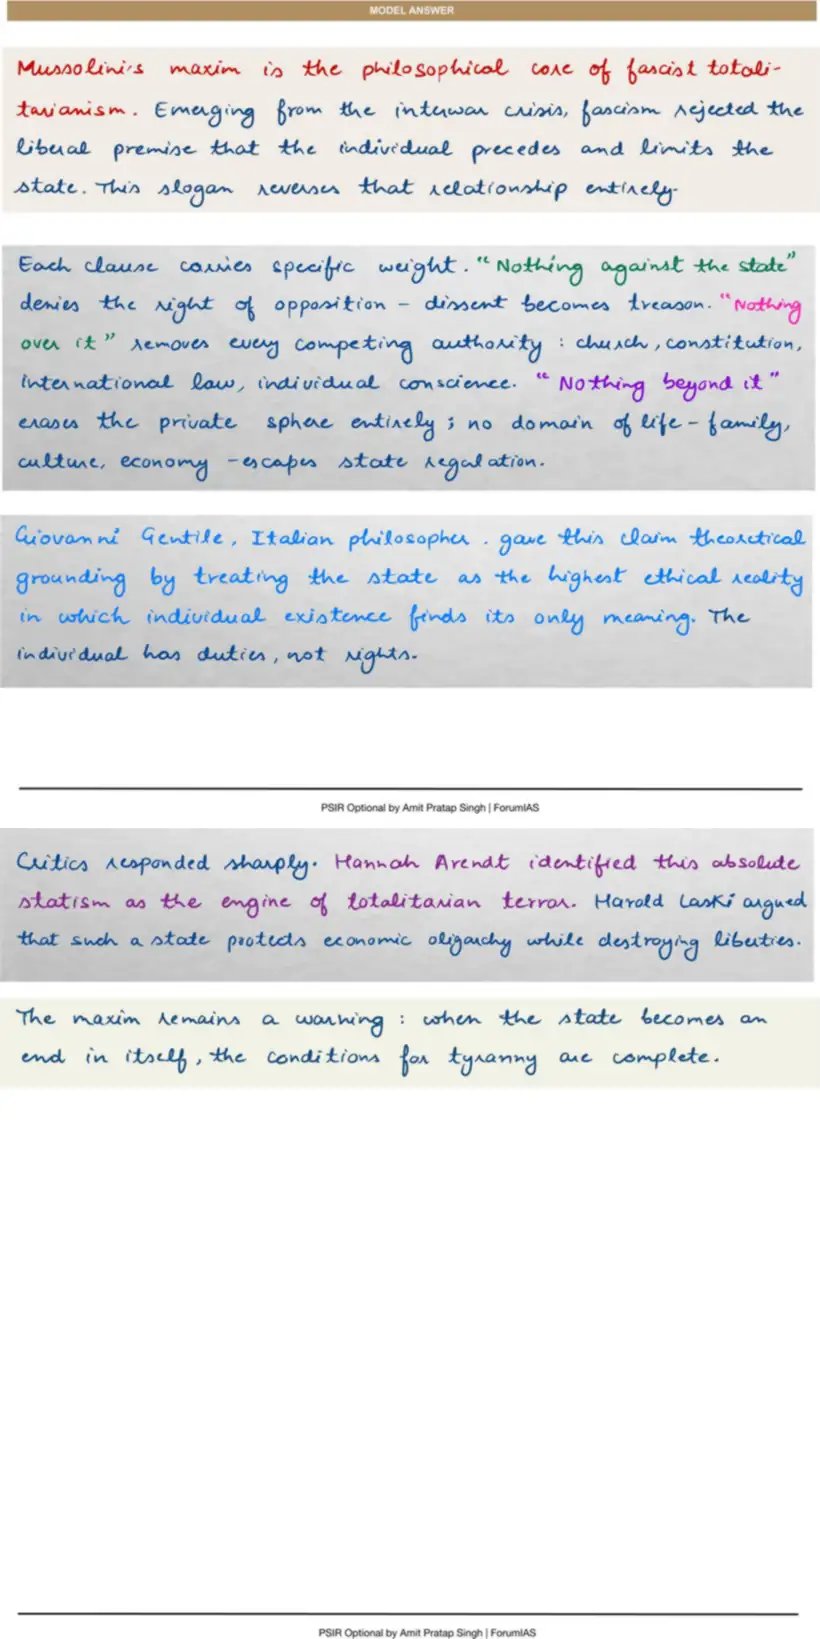 MODEL ANSWER
Mussolini's maxim is the philosophical core of fascist totali-
tarianism. Emerging from the interwar crisis, fascism rejected the
liberal premise that the individual precedes and limits the
state. This slogan reverses that relationship entirely.
Each clause carries specific weight. "Nothing against the state"
denies the right of opposition – dissent becomes treason. "Nothing
over it" removes every competing authority : church, constitution,
international law, individual conscience. "Nothing beyond it"
erases the private sphere entirely ; no domain of life – family,
culture, economy – escapes state regulation.
Giovanni Gentile, Italian philosopher . gave this claim theoretical
grounding by treating the state as the highest ethical reality
in which individual existence finds its only meaning. The
individual has duties, not rights.
PSIR Optional by Amit Pratap Singh | ForumIAS
Critics responded sharply. Hannah Arendt identified this absolute
statism as the engine of totalitarian terror. Harold Laski argued
that such a state protects economic oligarchy while destroying liberties.
The maxim remains a warning : when the state becomes an
end in itself, the conditions for tyranny are complete.
PSIR Optional by Amit Pratap Singh | ForumIAS